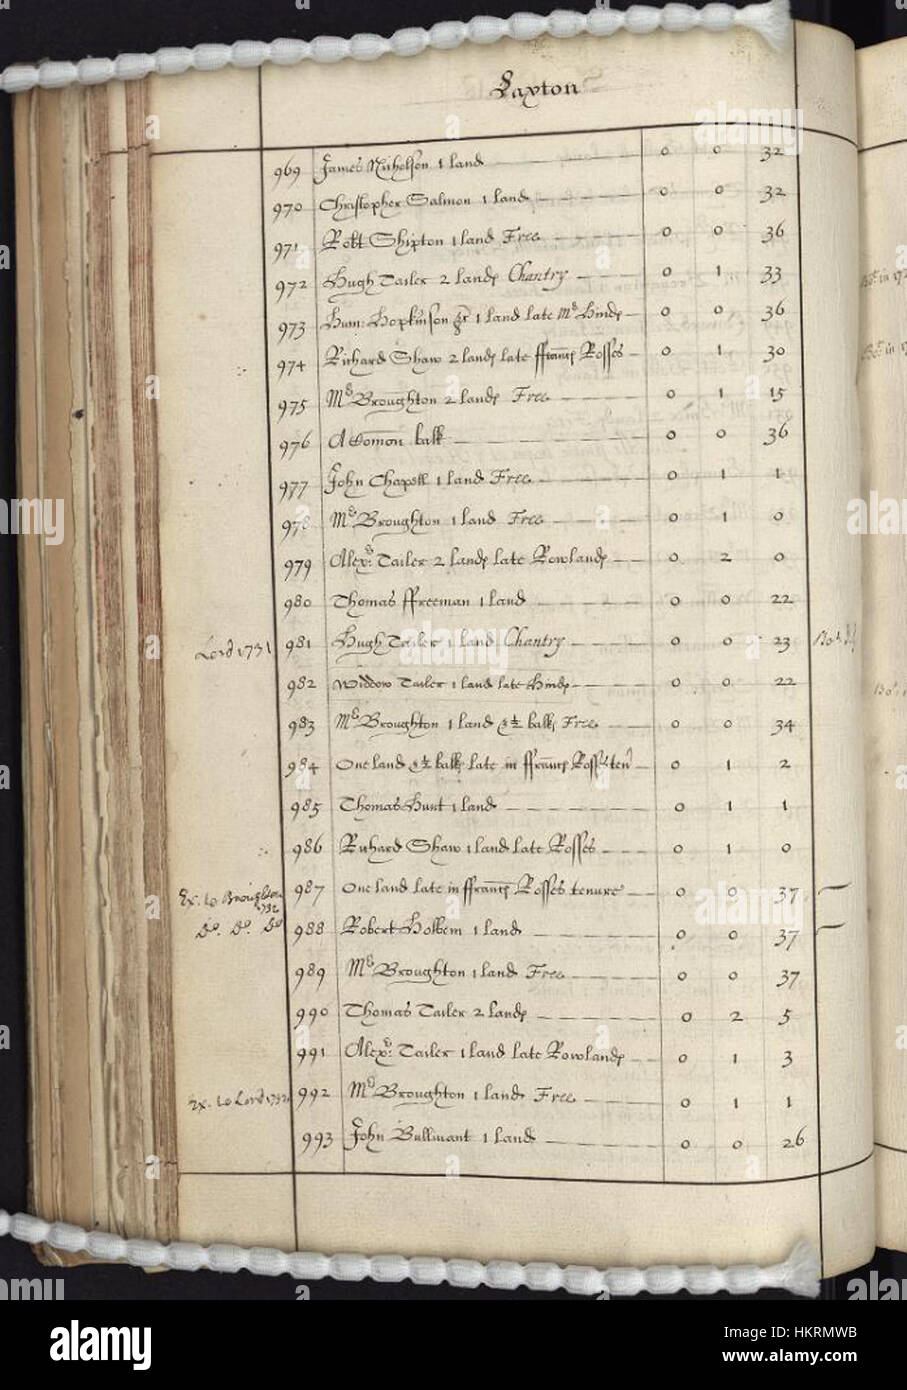 Laxton
969 James Nicholson 1 land 0 0 32
970 Christopher Salmon 1 land 0 0 32
971 Robt Shipton 1 land Free 0 0 36
972 Hugh Tailer 2 lands Chantry 0 1 33
973 Hum: Hopkinson gr 1 land late Mrs Hinds 0 0 36
974 Richard Shaw 2 lands late ffrancis Rosses 0 1 30
975 Mrs Broughton 2 lands Free 0 1 15
976 A Comon balk 0 0 36
977 John Chapell 1 land Free 0 1 1
978 Mrs Broughton 1 land Free 0 1 0
979 Alexr: Tailer 2 lands late Rowlands 0 2 0
980 Thomas ffreeman 1 land 0 0 22
Lord 1731 981 Hugh Tailer 1 land Chantry 0 0 23
982 Widdow Tailer 1 land late Hinds 0 0 22
983 Mrs Broughton 1 land & ½ balk Free 0 0 34
984 One land & ½ balk late in ffrancis Rosses ten 0 1 2
985 Thomas Hunt 1 land 0 1 1
986 Richard Shaw 1 land late Rosses 0 1 0
Ex. to Broughton 1732 987 One land late in ffrancis Rosses tenure 0 0 37
Do. Do. Do 988 Robert Holbem 1 land 0 0 37
989 Mrs Broughton 1 land Free 0 0 37
990 Thomas Tailer 2 lands 0 2 5
991 Alexr: Tailer 1 land late Rowlands 0 1 3
Ex. to Lord 1732 992 Mrs Broughton 1 land Free 0 1 1
993 John Bullivant 1 land 0 0 26
alamy
Image ID: HKRMWB
www.alamy.com